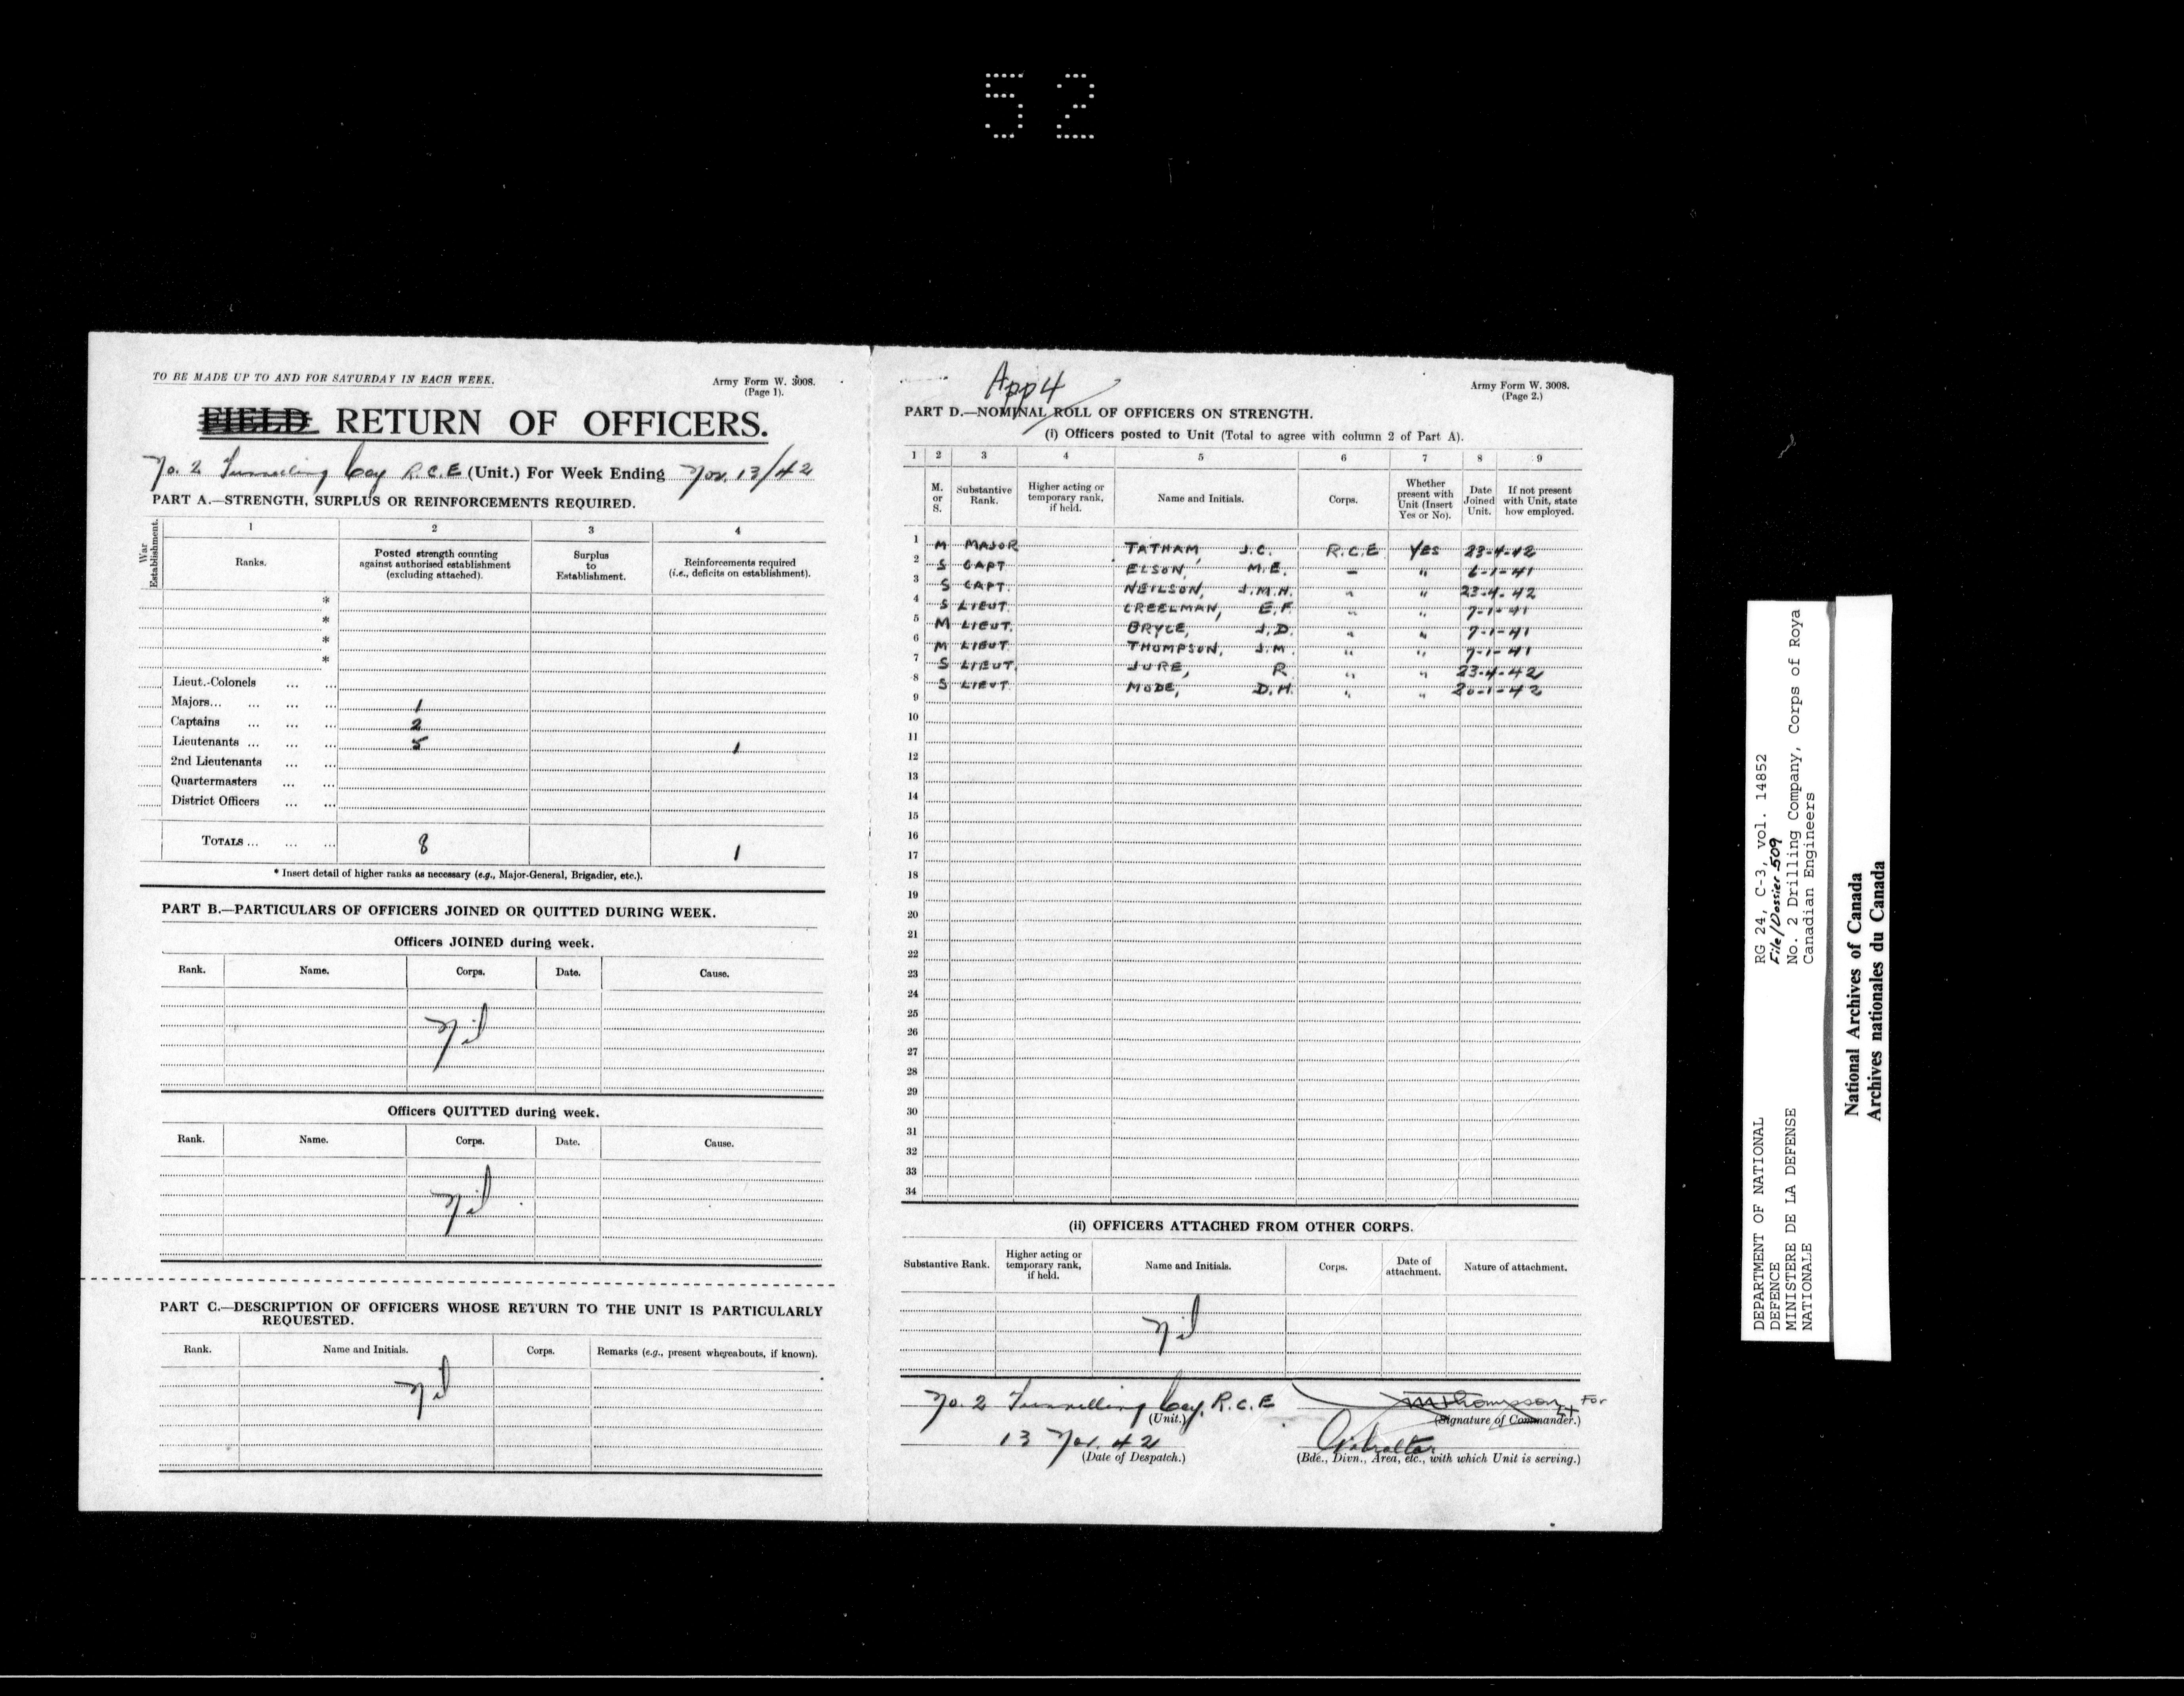 52
TO BE MADE UP TO AND FOR SATURDAY IN EACH WEEK.
Army Form W. 3008.
(Page 1).
FIELD RETURN OF OFFICERS.
No. 2 Tunnelling Coy R.C.E (Unit.) For Week Ending Nov. 13/42
PART A.—STRENGTH, SURPLUS OR REINFORCEMENTS REQUIRED.
War Establishment.
1 2 3 4
Ranks.
Posted strength counting against authorised establishment (excluding attached).
Surplus to Establishment.
Reinforcements required (i.e., deficits on establishment).
*
*
*
*
Lieut.-Colonels ... ...
Majors... ... ... ... 1
Captains ... ... ... 2
Lieutenants ... ... ... 5 1
2nd Lieutenants ... ...
Quartermasters ... ...
District Officers ... ...
TOTALS ... ... ... 8 1
* Insert detail of higher ranks as necessary (e.g., Major-General, Brigadier, etc.).
PART B.—PARTICULARS OF OFFICERS JOINED OR QUITTED DURING WEEK.
Officers JOINED during week.
Rank. Name. Corps. Date. Cause.
Nil
Officers QUITTED during week.
Rank. Name. Corps. Date. Cause.
Nil
PART C.—DESCRIPTION OF OFFICERS WHOSE RETURN TO THE UNIT IS PARTICULARLY
REQUESTED.
Rank. Name and Initials. Corps. Remarks (e.g., present whereabouts, if known).
Nil
App 4
Army Form W. 3008.
(Page 2.)
PART D.—NOMINAL ROLL OF OFFICERS ON STRENGTH.
(i) Officers posted to Unit (Total to agree with column 2 of Part A).
1 2 3 4 5 6 7 8 9
M. or S.
Substantive Rank.
Higher acting or temporary rank, if held.
Name and Initials.
Corps.
Whether present with Unit (Insert Yes or No).
Date Joined Unit.
If not present with Unit, state how employed.
1 M MAJOR TATHAM, J.C. R.C.E YES 23-4-42
2 S CAPT ELSON, M.E. " " 6-1-41
3 S CAPT. NEILSON, J.M.H. " " 23-4-42
4 S LIEUT. CREELMAN, E.F. " " 7-1-41
5 M LIEUT. BRYCE, J.D. " " 7-1-41
6 M LIEUT THOMPSON, J.M. " " 7-1-41
7 S LIEUT. JURE, R " " 23-4-42
8 S LIEUT. MODE, D.H. " " 20-1-42
9
10
11
12
13
14
15
16
17
18
19
20
21
22
23
24
25
26
27
28
29
30
31
32
33
34
(ii) OFFICERS ATTACHED FROM OTHER CORPS.
Substantive Rank.
Higher acting or temporary rank, if held.
Name and Initials.
Corps.
Date of attachment.
Nature of attachment.
Nil
No. 2 Tunnelling Coy. R.C.E
(Unit.)
JMThompson Lt For
(Signature of Commander.)
13 Nov. 42
(Date of Despatch.)
Gibraltar
(Bde., Divn., Area, etc., with which Unit is serving.)
DEPARTMENT OF NATIONAL
DEFENCE
MINISTERE DE LA DEFENSE
NATIONALE
RG 24, C-3, vol. 14852
File/Dossier 509
No. 2 Drilling Company, Corps of Roya
Canadian Engineers
National Archives of Canada
Archives nationales du Canada